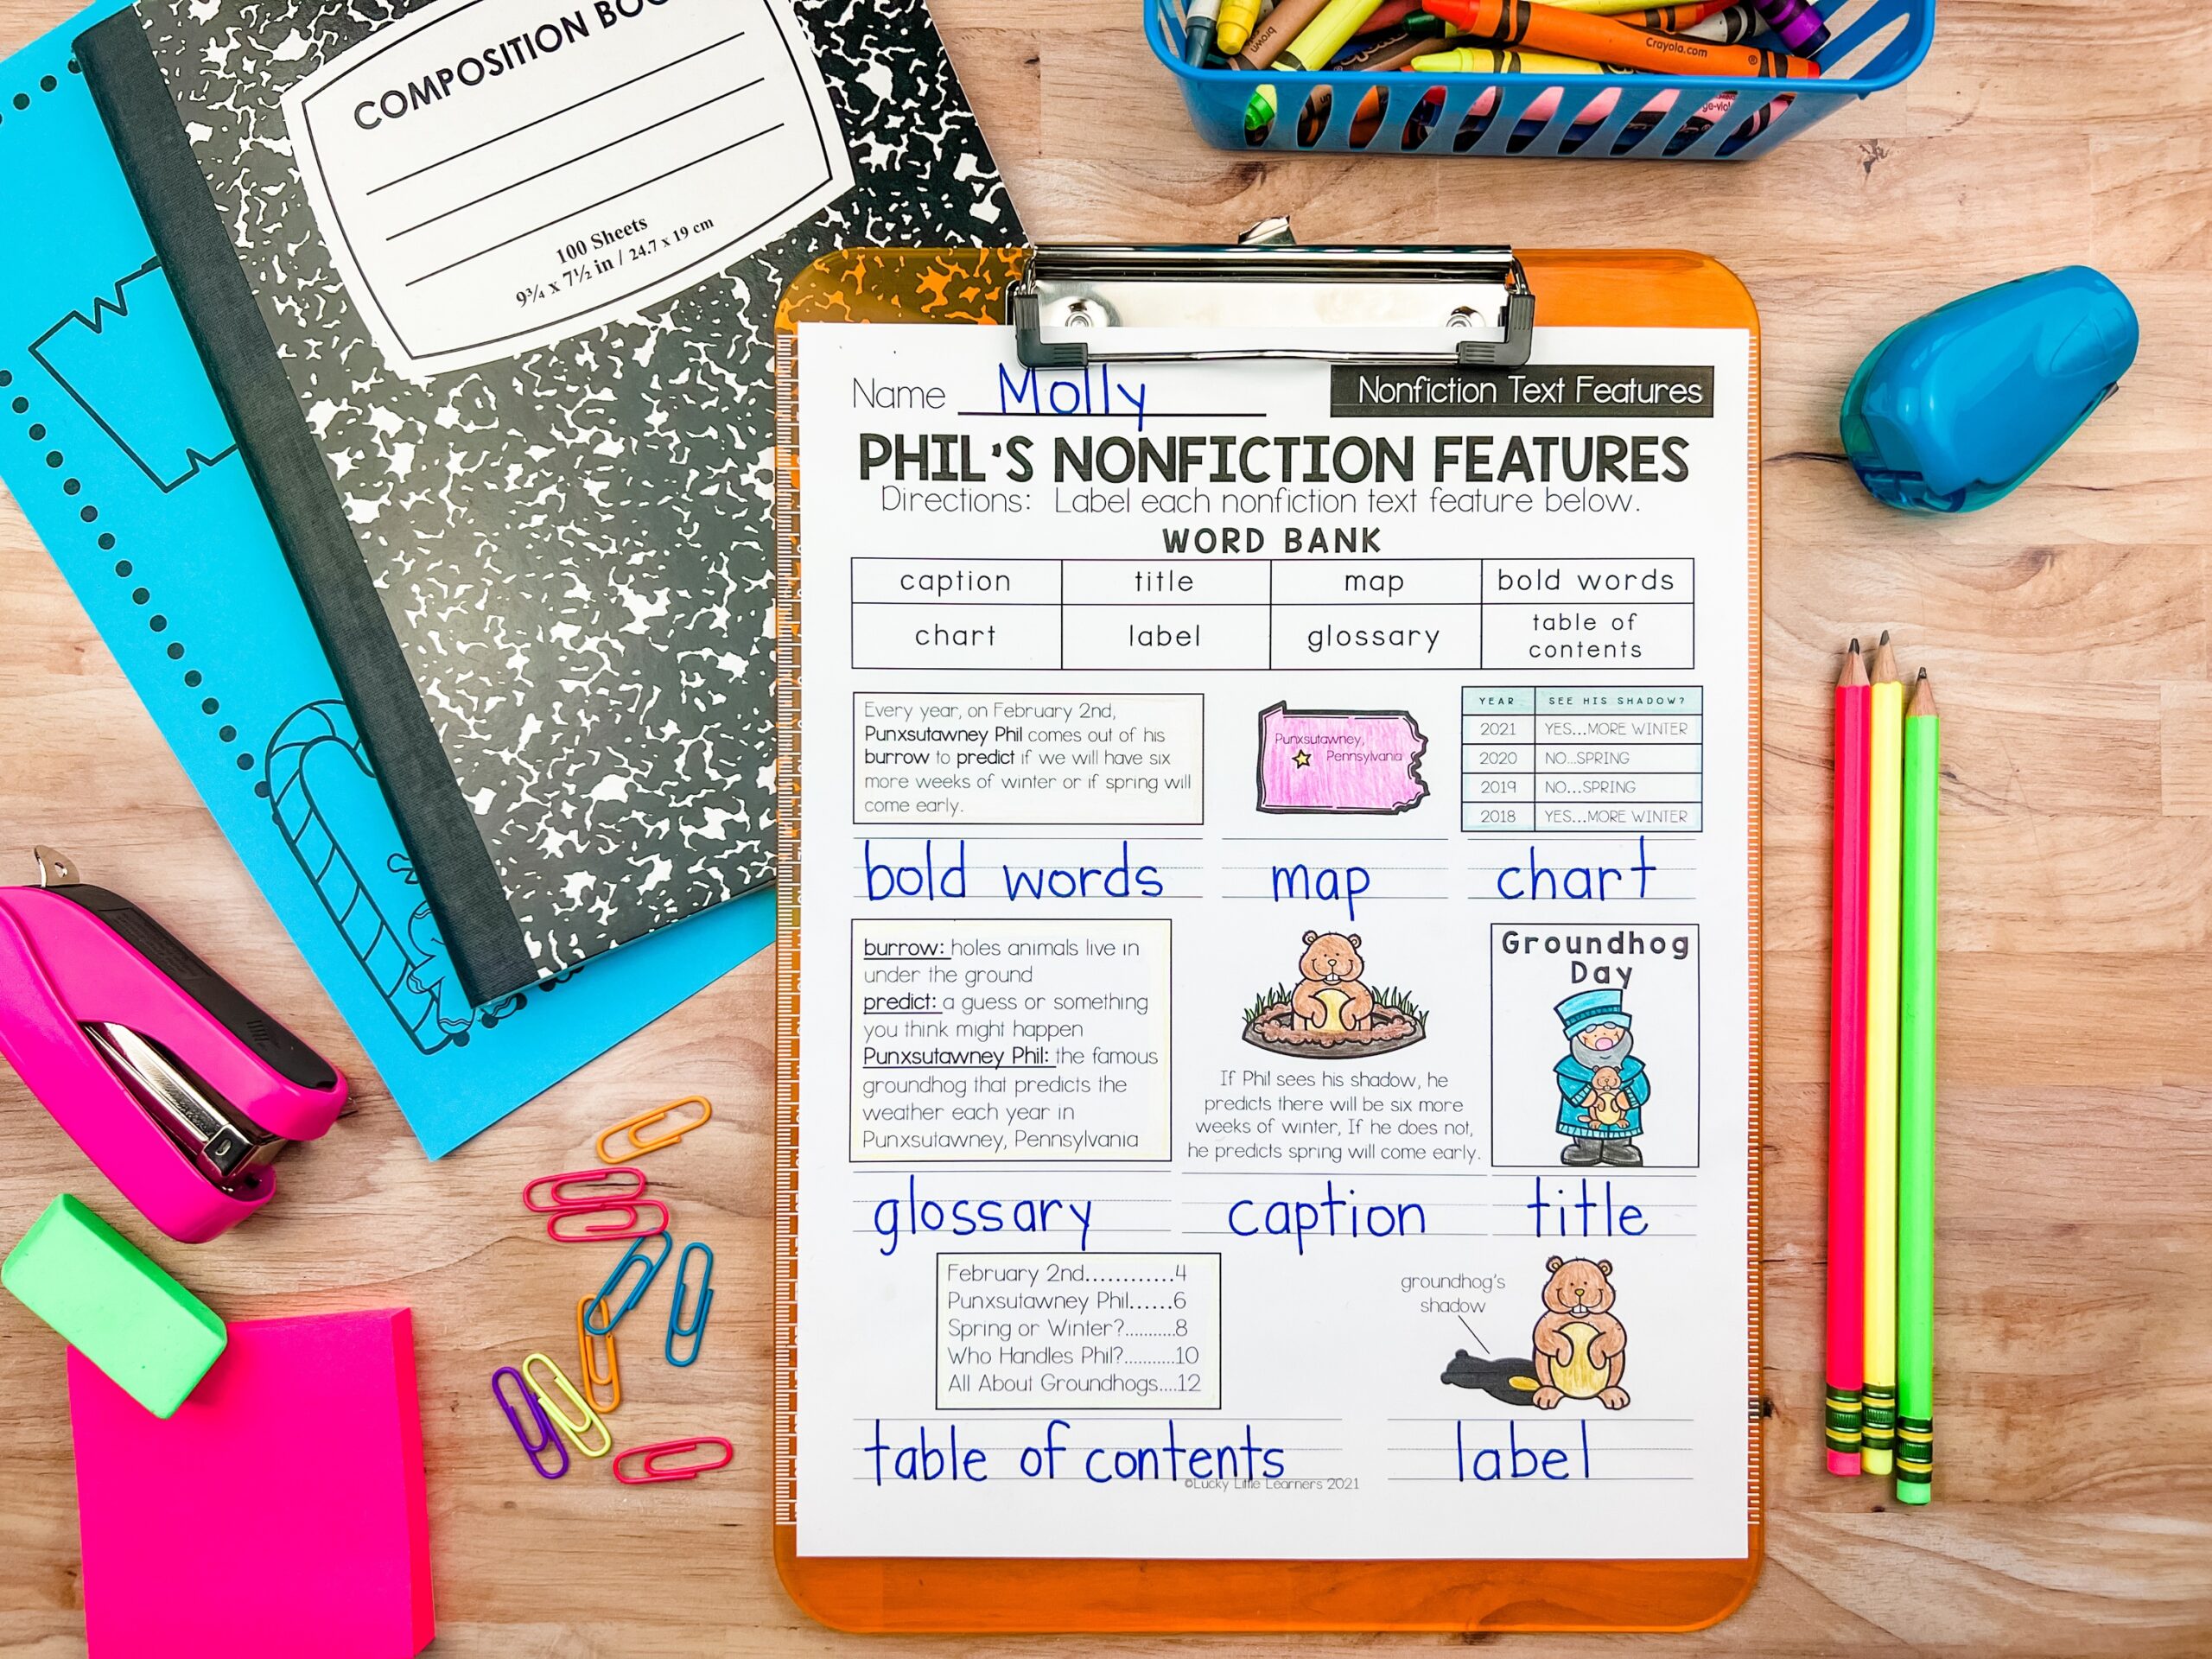 COMPOSITION BOO
100 Sheets
9¾ x 7½ in / 24.7 x 19 cm
brown
Crayola.com
®
ge-viol
Name Molly
Nonfiction Text Features
PHIL'S NONFICTION FEATURES
Directions: Label each nonfiction text feature below.
WORD BANK
caption title map bold words
chart label glossary table of
contents
Every year, on February 2nd,
Punxsutawney Phil comes out of his
burrow to predict if we will have six
more weeks of winter or if spring will
come early.
Punxsutawney,
Pennsylvania
YEAR SEE HIS SHADOW?
2021 YES...MORE WINTER
2020 NO...SPRING
2019 NO...SPRING
2018 YES...MORE WINTER
bold words map chart
burrow: holes animals live in
under the ground
predict: a guess or something
you think might happen
Punxsutawney Phil: the famous
groundhog that predicts the
weather each year in
Punxsutawney, Pennsylvania
If Phil sees his shadow, he
predicts there will be six more
weeks of winter, If he does not,
he predicts spring will come early.
Groundhog
Day
glossary caption title
February 2nd............4
Punxsutawney Phil......6
Spring or Winter?...........8
Who Handles Phil?...........10
All About Groundhogs....12
groundhog's
shadow
table of contents label
©Lucky Little Learners 2021